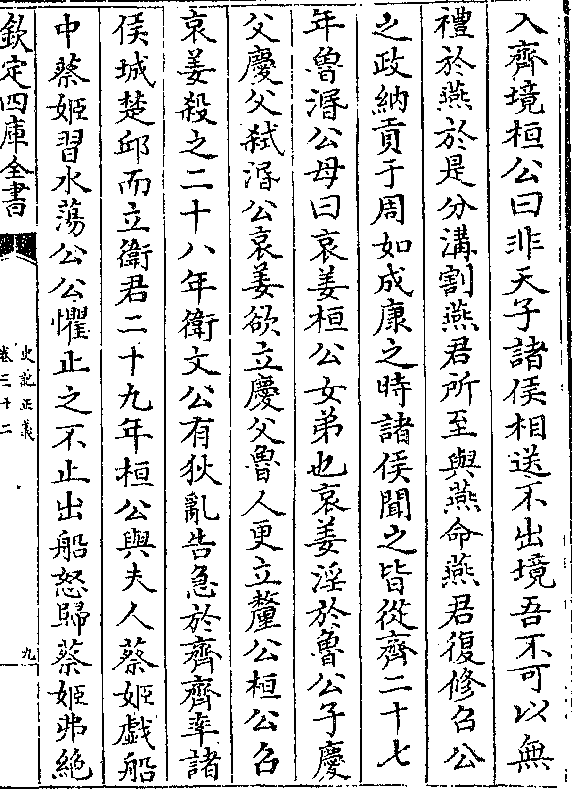 入齊境桓公曰非天子諸侯相送不出境吾不可以無
禮於燕於是分溝割燕君所至與燕命燕君復修召公
之政納貢于周如成康之時諸侯聞之皆從齊二十七
年魯湣公母曰哀姜桓公女弟也哀姜淫於魯公子慶
父慶父弑湣公哀姜欲立慶父魯人更立釐公桓公召
哀姜殺之二十八年衛文公有狄亂告急於齊齊率諸
侯城楚邱而立衛君二十九年桓公與夫人蔡姬戲船
中蔡姬習水蕩公公懼止之不止出船怒歸蔡姬弗絶
欽定四庫全書
史記正義
卷三十二
九